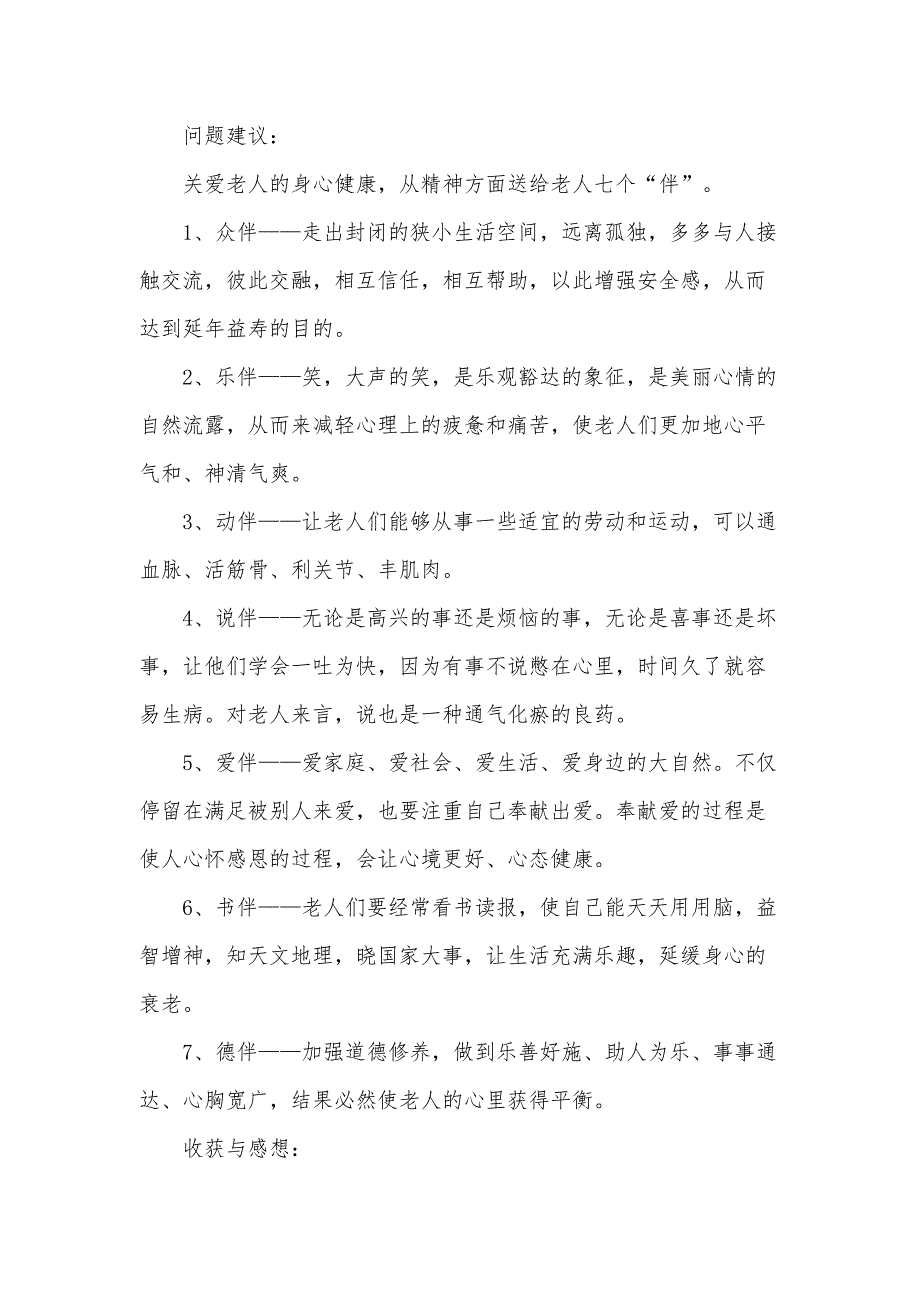 问题建议：
关爱老人的身心健康，从精神方面送给老人七个“伴”。
1、众伴——走出封闭的狭小生活空间，远离孤独，多多与人接
触交流，彼此交融，相互信任，相互帮助，以此增强安全感，从而
达到延年益寿的目的。
2、乐伴——笑，大声的笑，是乐观豁达的象征，是美丽心情的
自然流露，从而来减轻心理上的疲惫和痛苦，使老人们更加地心平
气和、神清气爽。
3、动伴——让老人们能够从事一些适宜的劳动和运动，可以通
血脉、活筋骨、利关节、丰肌肉。
4、说伴——无论是高兴的事还是烦恼的事，无论是喜事还是坏
事，让他们学会一吐为快，因为有事不说憋在心里，时间久了就容
易生病。对老人来言，说也是一种通气化瘀的良药。
5、爱伴——爱家庭、爱社会、爱生活、爱身边的大自然。不仅
停留在满足被别人来爱，也要注重自己奉献出爱。奉献爱的过程是
使人心怀感恩的过程，会让心境更好、心态健康。
6、书伴——老人们要经常看书读报，使自己能天天用用脑，益
智增神，知天文地理，晓国家大事，让生活充满乐趣，延缓身心的
衰老。
7、德伴——加强道德修养，做到乐善好施、助人为乐、事事通
达、心胸宽广，结果必然使老人的心里获得平衡。
收获与感想：